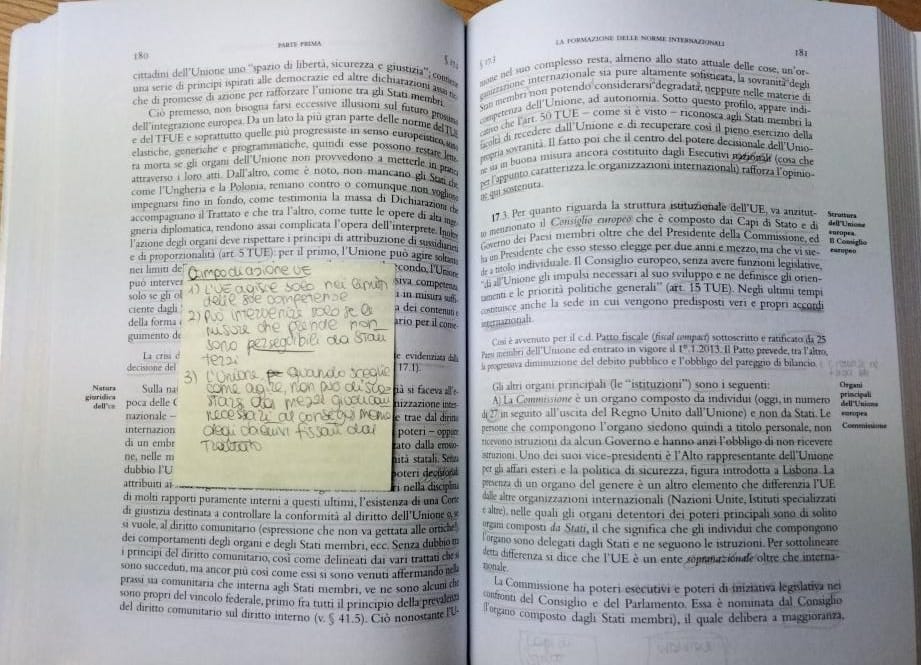 180
PARTE PRIMA
cittadini dell'Unione uno "spazio di libertà, sicurezza e giustizia"; contiene
una serie di principi ispirati alle democrazie ed altre dichiarazioni assai
che di promesse di azione per rafforzare l'unione tra gli Stati membri.
Ciò premesso, non bisogna farsi eccessive illusioni sul futuro prossimo
dell'integrazione europea. Da un lato la più gran parte delle norme del TUE
e del TFUE e soprattutto quelle più progressiste in senso europeistico, sono
elastiche, generiche e programmatiche, quindi esse possono restare lette-
ra morta se gli organi dell'Unione non provvedono a metterle in pratica
attraverso i loro atti. Dall'altro, come è noto, non mancano gli Stati che,
come l'Ungheria e la Polonia, remano contro o comunque non vogliono
impegnarsi fino in fondo, come testimonia la massa di Dichiarazioni che
accompagnano il Trattato e che tra l'altro, come tutte le opere di alta inge-
gneria diplomatica, rendono assai complicata l'opera dell'interprete. Inoltre
l'azione degli organi deve rispettare i principi di attribuzione di sussidiarietà
e di proporzionalità (art. 5 TUE): per il primo, l'Unione può agire soltanto
nei limiti de
econdo, l'Unione
può interve
siva competenza
solo se gli o
i in misura suffi-
ciente dagli
a dei contenuti e
della forma
ario per il conse-
guimento de
Campo di azione UE
1) L'UE agisce solo nei limiti
delle sue competenze
2) Può intervenire solo se le
misure che prende non
sono perseguibili da Stati
terzi
3) L'Unione quando sceglie
come agire, non può disco-
starsi dai mezzi giudicati
necessari al conseguimento
degli obiettivi fissati dal
Trattato
La crisi d
evidenziata dalla
decisione del
17.1).
Natura
giuridica
dell'UE
Sulla na
già si faceva all'e-
poca delle C
nizzazione inter-
nazionale –
e trae dal diritto
internazion
poteri – oppure
di un embr
tato dalla erosio-
ne, nelle m
nità statali. Senza
dubbio l'U
poteri decisionali
attribuiti ai
ri nella disciplina
di molti rapporti puramente interni a questi ultimi, l'esistenza di una Corte
di giustizia destinata a controllare la conformità al diritto dell'Unione o, se
si vuole, al diritto comunitario (espressione che non va gettata alle ortiche!),
dei comportamenti degli organi e degli Stati membri, ecc. Senza dubbio tra
i principi del diritto comunitario, così come delineati dai vari trattati che si
sono succeduti, ma ancor più così come essi si sono venuti affermando nella
prassi sia comunitaria che interna agli Stati membri, ve ne sono alcuni che
sono propri del vincolo federale, primo fra tutti il principio della prevalenza
del diritto comunitario sul diritto interno (v. § 41.5). Ciò nonostante l'U-
§ 17.3
LA FORMAZIONE DELLE NORME INTERNAZIONALI
181
nione nel suo complesso resta, almeno allo stato attuale delle cose, un'or-
ganizzazione internazionale sia pure altamente sofisticata, la sovranità degli
Stati membri non potendo considerarsi degradata, neppure nelle materie di
competenza dell'Unione, ad autonomia. Sotto questo profilo, appare indi-
cativo che l'art. 50 TUE – come si è visto – riconosca agli Stati membri la
facoltà di recedere dall'Unione e di recuperare così il pieno esercizio della
propria sovranità. Il fatto poi che il centro del potere decisionale dell'Unio-
ne sia in buona misura ancora costituito dagli Esecutivi nazionali (cosa che
per l'appunto caratterizza le organizzazioni internazionali) rafforza l'opinio-
ne qui sostenuta.
17.3. Per quanto riguarda la struttura istituzionale dell'UE, va anzitut-
to menzionato il Consiglio europeo che è composto dai Capi di Stato e di
Governo dei Paesi membri oltre che del Presidente della Commissione, ed
ha un Presidente che esso stesso elegge per due anni e mezzo, ma che vi sie-
de a titolo individuale. Il Consiglio europeo, senza avere funzioni legislative,
"dà all'Unione gli impulsi necessari al suo sviluppo e ne definisce gli orien-
tamenti e le priorità politiche generali" (art. 15 TUE). Negli ultimi tempi
costituisce anche la sede in cui vengono predisposti veri e propri accordi
internazionali.
Struttura
dell'Unione
europea.
Il Consiglio
europeo
Così è avvenuto per il c.d. Patto fiscale (fiscal compact) sottoscritto e ratificato da 25
Paesi membri dell'Unione ed entrato in vigore il 1°.1.2013. Il Patto prevede, tra l'altro,
la progressiva diminuzione del debito pubblico e l'obbligo del pareggio di bilancio.
Gli altri organi principali (le "istituzioni") sono i seguenti:
Organi
principali
dell'Unione
europea
Commissione
A) La Commissione è un organo composto da individui (oggi, in numero
di 27 in seguito all'uscita del Regno Unito dall'Unione) e non da Stati. Le
persone che compongono l'organo siedono quindi a titolo personale, non
ricevono istruzioni da alcun Governo e hanno anzi l'obbligo di non ricevere
istruzioni. Uno dei suoi vice-presidenti è l'Alto rappresentante dell'Unione
per gli affari esteri e la politica di sicurezza, figura introdotta a Lisbona. La
presenza di un organo del genere è un altro elemento che differenzia l'UE
dalle altre organizzazioni internazionali (Nazioni Unite, Istituti specializzati
e altre), nelle quali gli organi detentori dei poteri principali sono di solito
organi composti da Stati, il che significa che gli individui che compongono
l'organo sono delegati dagli Stati e ne seguono le istruzioni. Per sottolineare
detta differenza si dice che l'UE è un ente sopranazionale oltre che interna-
zionale.
La Commissione ha poteri esecutivi e poteri di iniziativa legislativa nei
confronti del Consiglio e del Parlamento. Essa è nominata dal Consiglio
(l'organo composto dagli Stati membri), il quale delibera a maggioranza,